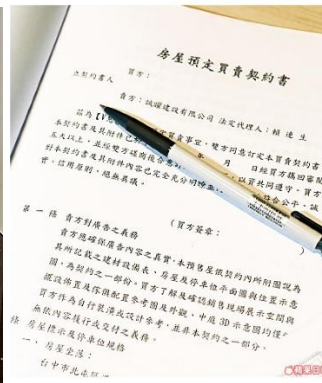 房屋預定買賣契約書
立契約書人
買方：
賣方：誠曜建設有限公司 法定代理人：賴連生
茲為【V
定買賣事宜，雙方同意訂定本買賣契約書
本契約書及其附件已
年 月 日經買方攜回審閱
五天以上，並經雙方磋商後合意
，以資共同遵守。買方
對本契約書及其附件內容已完全充分了解
符合公平、誠
實、信用原則，絕無異議。
（買方簽章：
第一條 賣方對廣告之義務
賣方應確保廣告內容之真實，本預售屋依契約內所附圖說為
其所記載之建材設備表、房屋及停車位平面圖與位置示意
圖，為契約之一部份。買方了解及確認銷售現場展示空間與
擺設佈置及傢俱配置參考圖及外觀、中庭3D示意圖均僅
買方作為自行裝潢或設計參考，並非本契約之一部分，
無依內容履行或交付之義務。
條 房屋標示及停車位規格
一、房屋坐落：
台中市北屯區
蘋果日